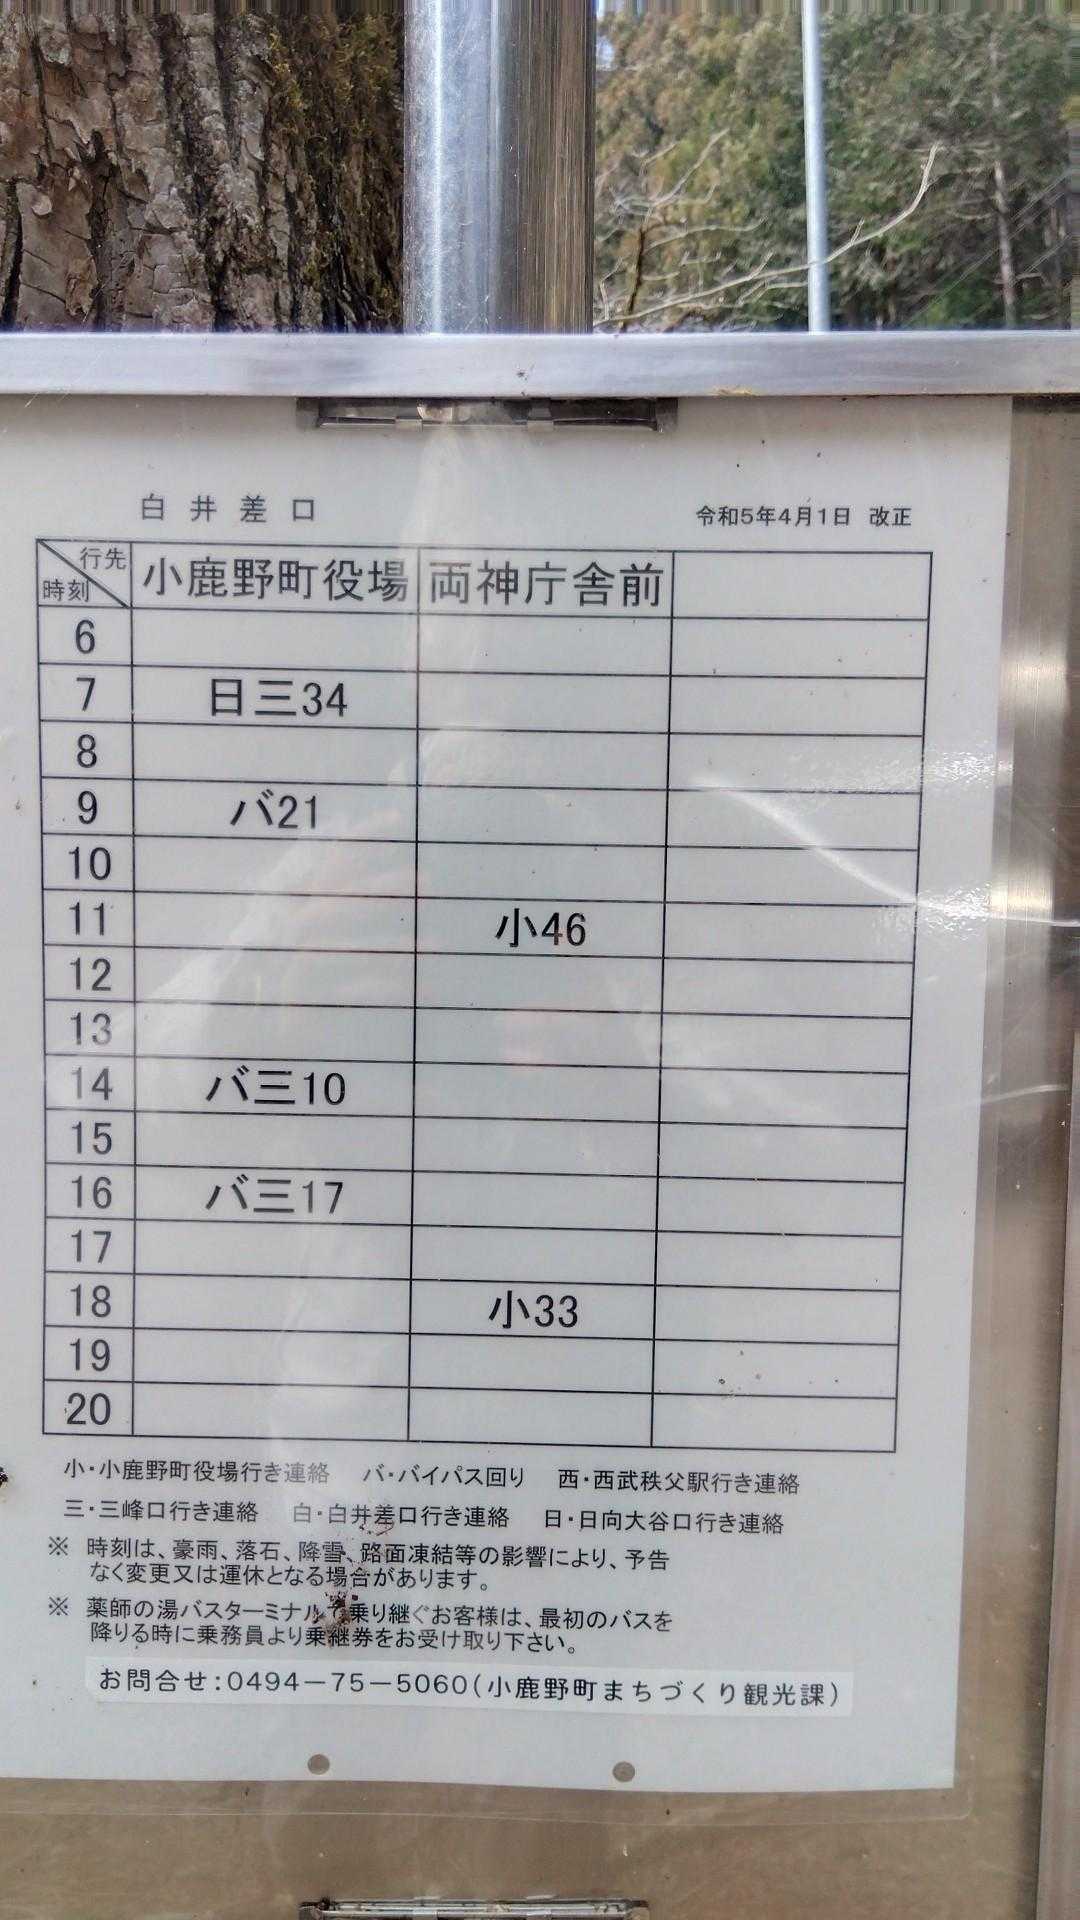 白井差口
令和5年4月1日 改正
行先 時刻 小鹿野町役場 両神庁舎前
6
7 日三34
8
9 バ21
10
11 小46
12
13
14 バ三10
15
16 バ三17
17
18 小33
19
20
小・小鹿野町役場行き連絡 バ・バイパス回り 西・西武秩父駅行き連絡
三・三峰口行き連絡 白・白井差口行き連絡 日・日向大谷口行き連絡
※ 時刻は、豪雨、落石、降雪、路面凍結等の影響により、予告
なく変更又は運休となる場合があります。
※ 薬師の湯バスターミナルで乗り継ぐお客様は、最初のバスを
降りる時に乗務員より乗継券をお受け取り下さい。
お問合せ:0494-75-5060(小鹿野町まちづくり観光課)